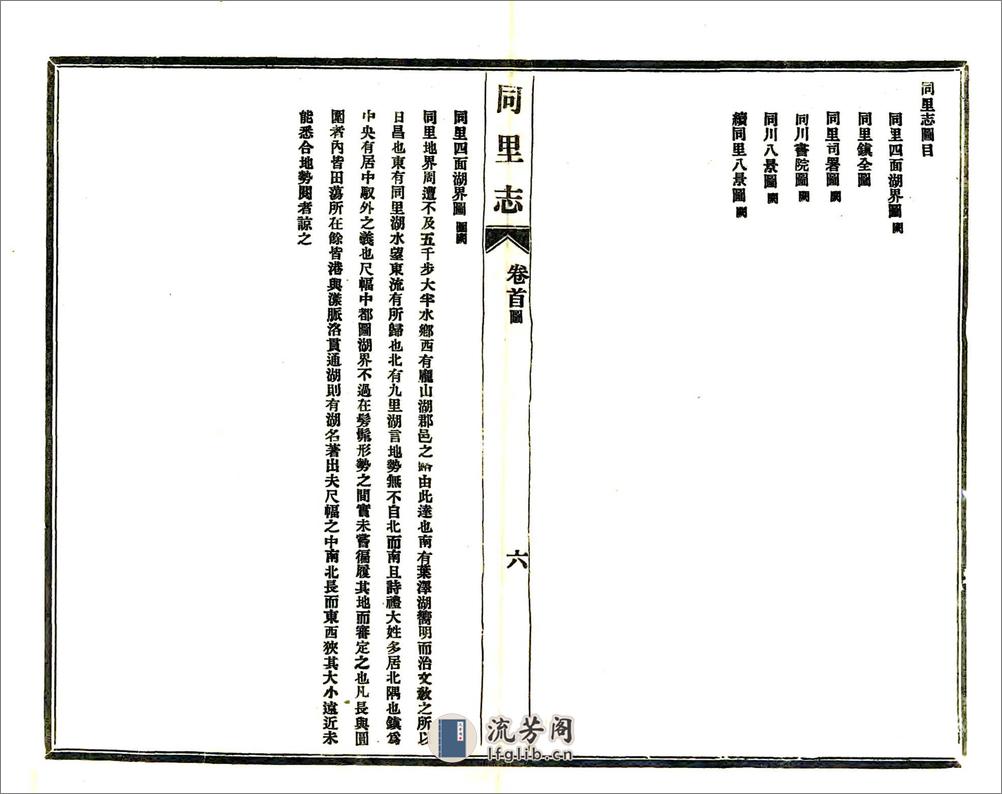 同里志圖目
同里四面湖界圖 闕
同里鎮全圖
同里司署圖 闕
同川書院圖 闕
同川八景圖 闕
續同里八景圖 闕
同里志
卷首 圖
六
同里四面湖界圖 圖闕
同里地界周遭不及五千步大半水鄉西有龐山湖郡邑之路由此達也南有葉澤湖嚮明而治文敎之所以
日昌也東有同里湖水望東流有所歸也北有九里湖言地勢無不自北而南且詩禮大姓多居北隅也鎭爲
中央有居中馭外之義也尺幅中都圖湖界不過在髣髴形勢之間實未嘗徧履其地而審定之也凡長與圓
圍者內皆田蕩所在餘皆港與漾脈洛貫通湖則有湖名著出夫尺幅之中南北長而東西狹其大小遠近未
能悉合地勢閱者諒之
流芳阁
lfglib.cn